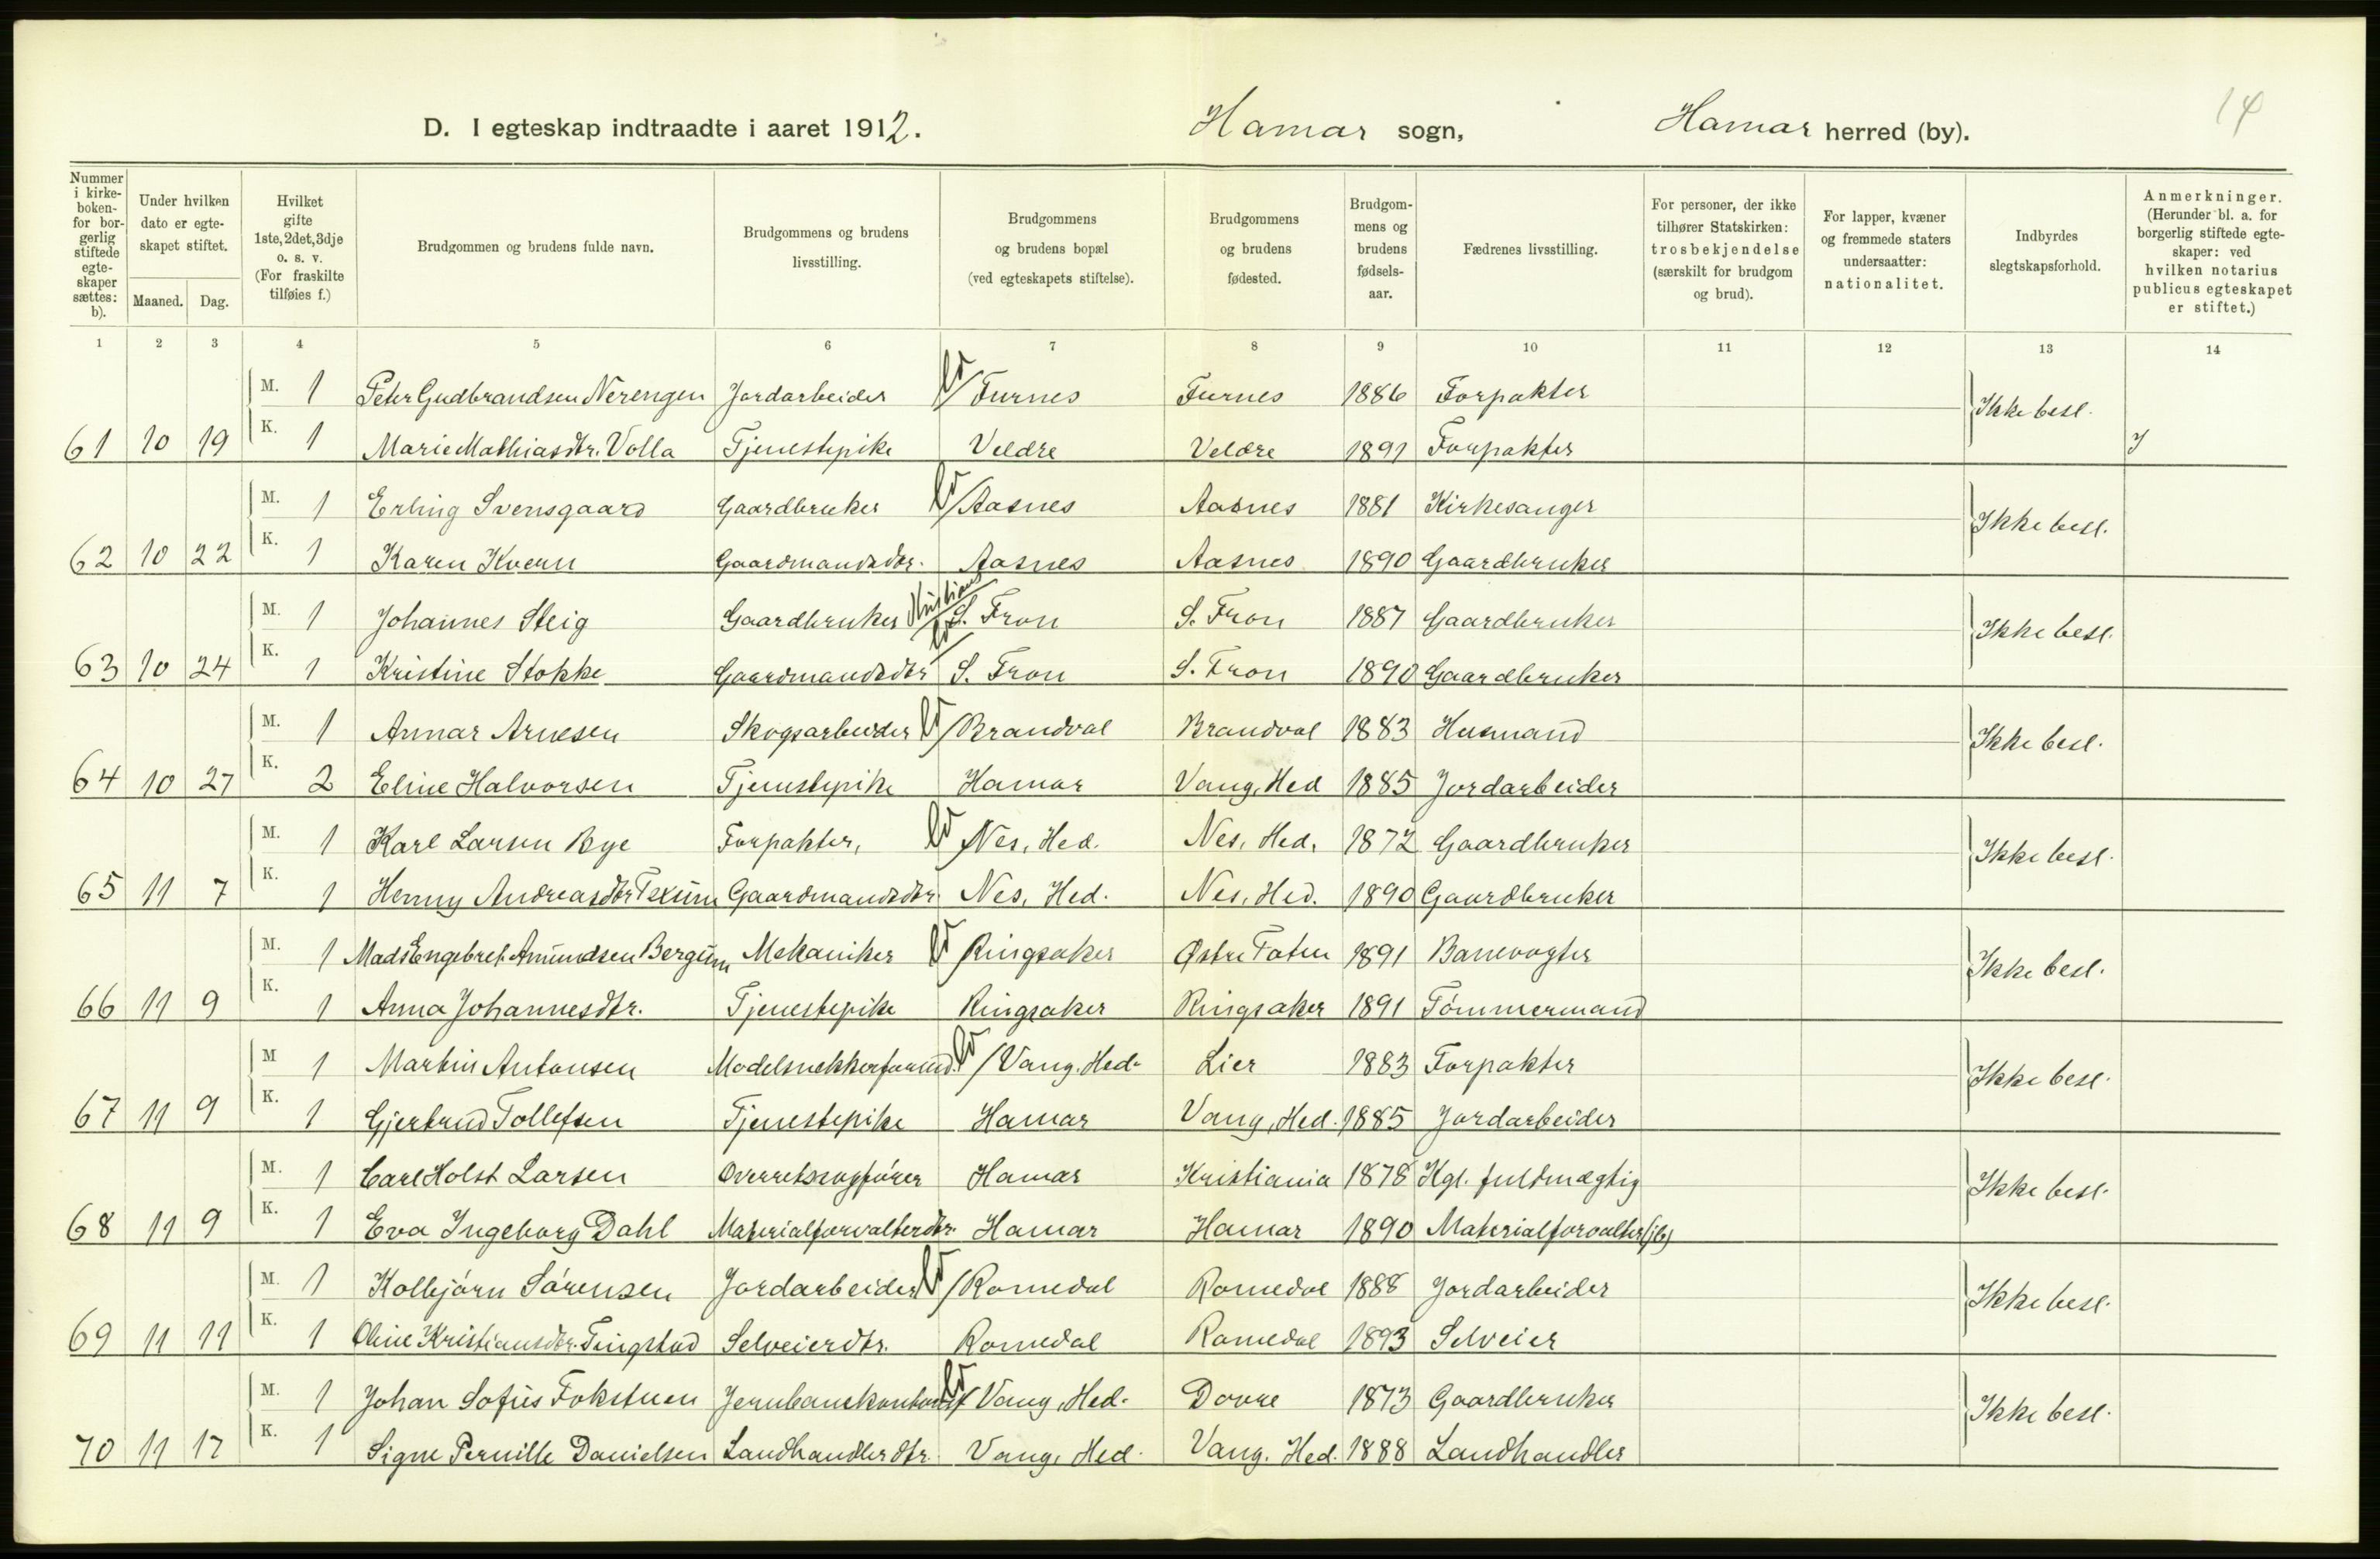 14
D. I egteskap indtraadte i aaret 1912. Hamar sogn, Hamar herred (by).
Nummer i kirke-boken- for bor-gerlig stiftede egte-skaper sættes: b).
Under hvilken dato er egte-skapet stiftet.
Maaned. Dag.
Hvilket gifte 1ste, 2det, 3dje o. s. v. (For fraskilte tilføies f.)
Brudgommen og brudens fulde navn.
Brudgommens og brudens livsstilling.
Brudgommens og brudens bopæl (ved egteskapets stiftelse).
Brudgommens og brudens fødested.
Brudgom-mens og brudens fødsels-aar.
Fædrenes livsstilling.
For personer, der ikke tilhører Statskirken: trosbekjendelse (særskilt for brudgom og brud).
For lapper, kvæner og fremmede staters undersaatter: nationalitet.
Indbyrdes slegtskapsforhold.
Anmerkninger. (Herunder bl. a. for borgerlig stiftede egte-skaper: ved hvilken notarius publicus egteskapet er stiftet.)
1 2 3 4 5 6 7 8 9 10 11 12 13 14
M. 1 Peter Gudbrandsen Nerengen Jordarbeider Furnes Furnes 1886 Forpakter Ikke besl.
61 10 19 K. 1 Marie Mathiasdtr. Volla Tjenestepike Veldre Veldre 1891 Forpakter
M. 1 Erling Svensgaard Gaardbruker Aasnes Aasnes 1881 Kirkesanger Ikke besl.
62 10 22 K. 1 Karen Kvern Gaardmandsdtr. Aasnes Aasnes 1890 Gaardbruker
M. 1 Johannes Steig Gaardbruker Kristians S. Fron S. Fron 1887 Gaardbruker Ikke besl.
63 10 24 K. 1 Kristine Stokke Gaardmandsdtr S. Fron S. Fron 1890 Gaardbruker
M. 1 Annar Arnesen Skogsarbeider Brandval Brandval 1883 Husmand Ikke besl.
64 10 27 K. 2 Eline Halvorsen Tjenestepike Hamar Vang, Hed 1885 Jordarbeider
M. 1 Karl Larsen Bye Forpakter, Nes, Hed. Nes, Hed. 1872 Gaardbruker Ikke besl.
65 11 7 K. 1 Henny Andreasdtr Texum Gaardmandsdtr. Nes, Hed. Nes, Hed. 1890 Gaardbruker
M. 1 Mads Engebret Amundsen Bergum Mekaniker Ringsaker Østre Toten 1891 Banevogter Ikke besl.
66 11 9 K. 1 Anna Johannesdtr. Tjenestepike Ringsaker Ringsaker 1891 Tømmermand
M 1 Martin Antonsen Modelsnekkerformd. Vang, Hed. Lier 1883 Forpakter Ikke besl.
67 11 9 K. 1 Gjertrud Tollefsen Tjenestepike Hamar Vang, Hed. 1885 Jordarbeider
M. 1 Carl Holst Larsen Overretssagfører Hamar Kristiania 1878 Kgl. fuldmægtig Ikke besl.
68 11 9 K. 1 Eva Ingeborg Dahl Materialforvalterdtr. Hamar Hamar 1890 Materialforvalter (jb)
M. 1 Kolbjørn Sørensen Jordarbeider Romedal Romedal 1888 Jordarbeider Ikke besl.
69 11 11 K. 1 Oline Kristiansdtr. Tingstad Selveierdtr. Romedal Romedal 1893 Selveier
M. 1 Johan Sofus Fokstuen Vang, Hed. Dovre 1873 Gaardbruker Ikke besl.
70 11 17 K. 1 Signe Pernille Danielsen Landhandlerdtr. Vang, Hed. Vang. Hed. 1888 Landhandler